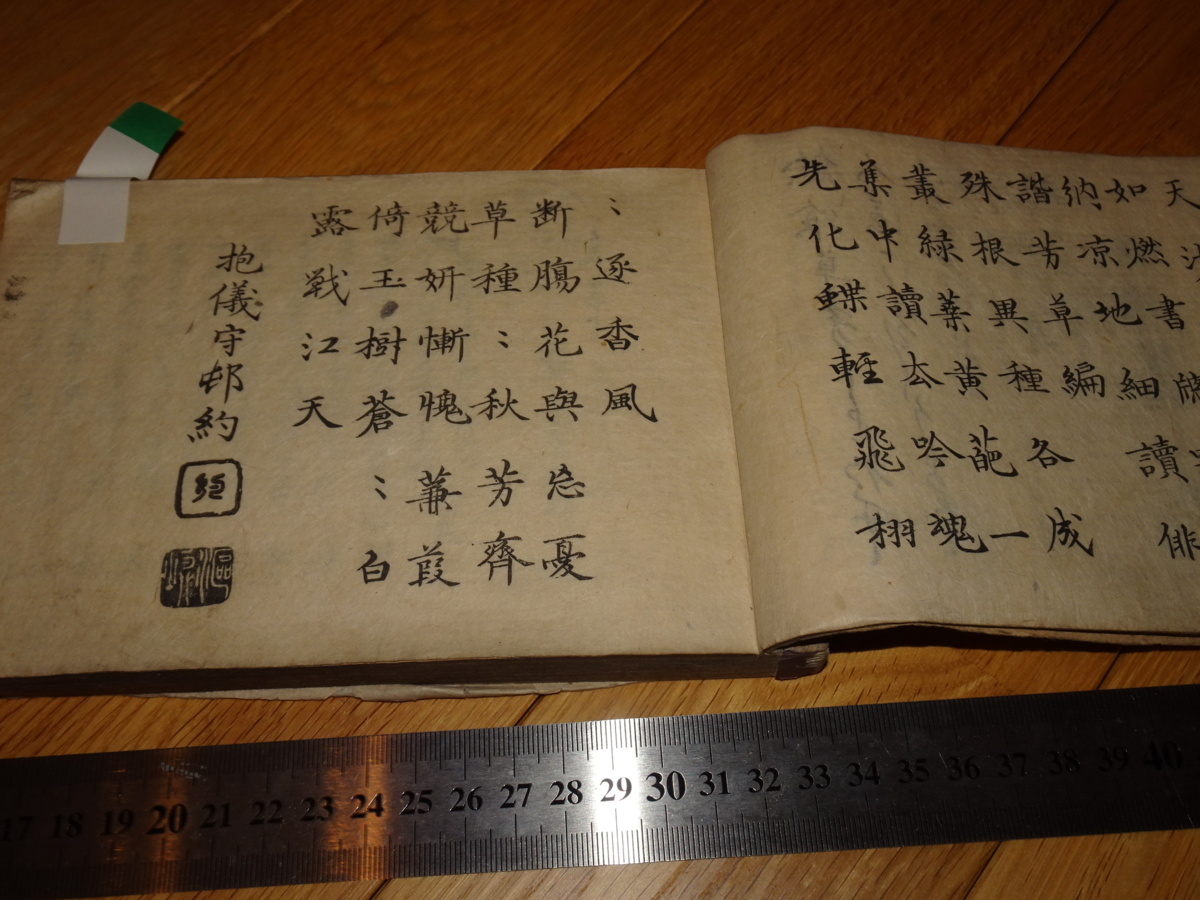 天
如燃書牕
納凉地細讀俳
諧芳草編
殊根異種各成
叢緑葉黄葩一
集中讀厺吟魂
先化蝶輕飛栩
〻逐香風
断腸花與忘憂
草種〻秋芳齊
競妍慚愧蒹葭
倚玉樹蒼〻白
露戦江天
抱儀守邨約
17 18 19 20 21 22 23 24 25 26 27 28 29 30 31 32 33 34 35 36 37 38 39 40